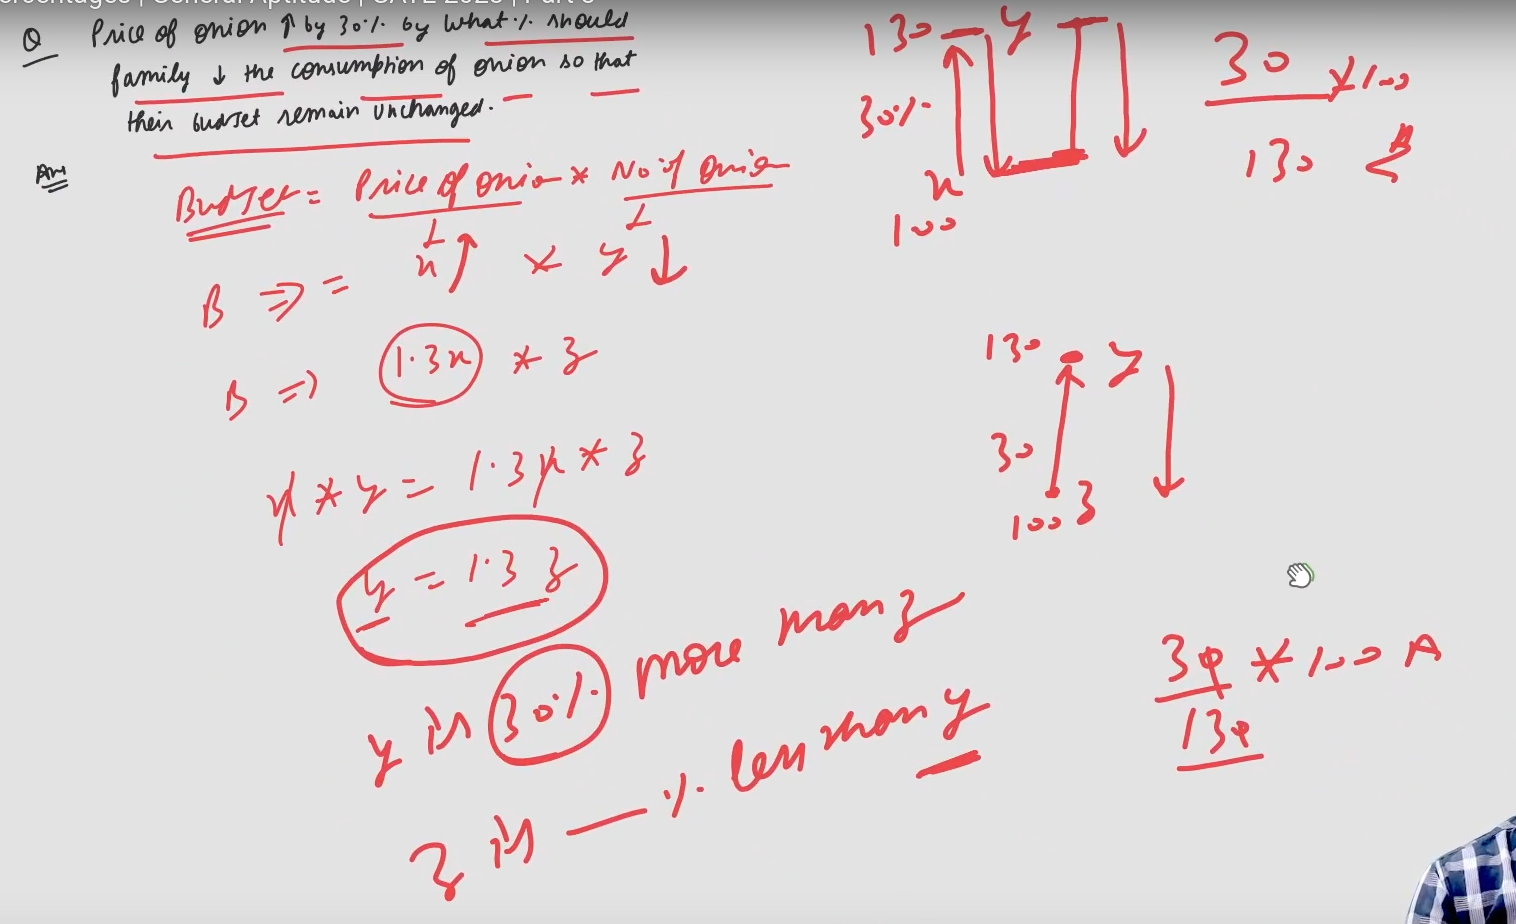 Q Price of onion ↑ by 30%. by what % should
family ↓ the consumption of onion so that
their budget remain unchanged.
Ans
Budget = Price of onion * No of onion
B => = x ↑ * y ↓
B => 1.3x * z
x * y = 1.3x * z
y = 1.3 z
y is 30% more than z
z is — % less than y
130 y
30%
x
100
30 * 100
130
130 y
30
100 z
30 * 100 A
130